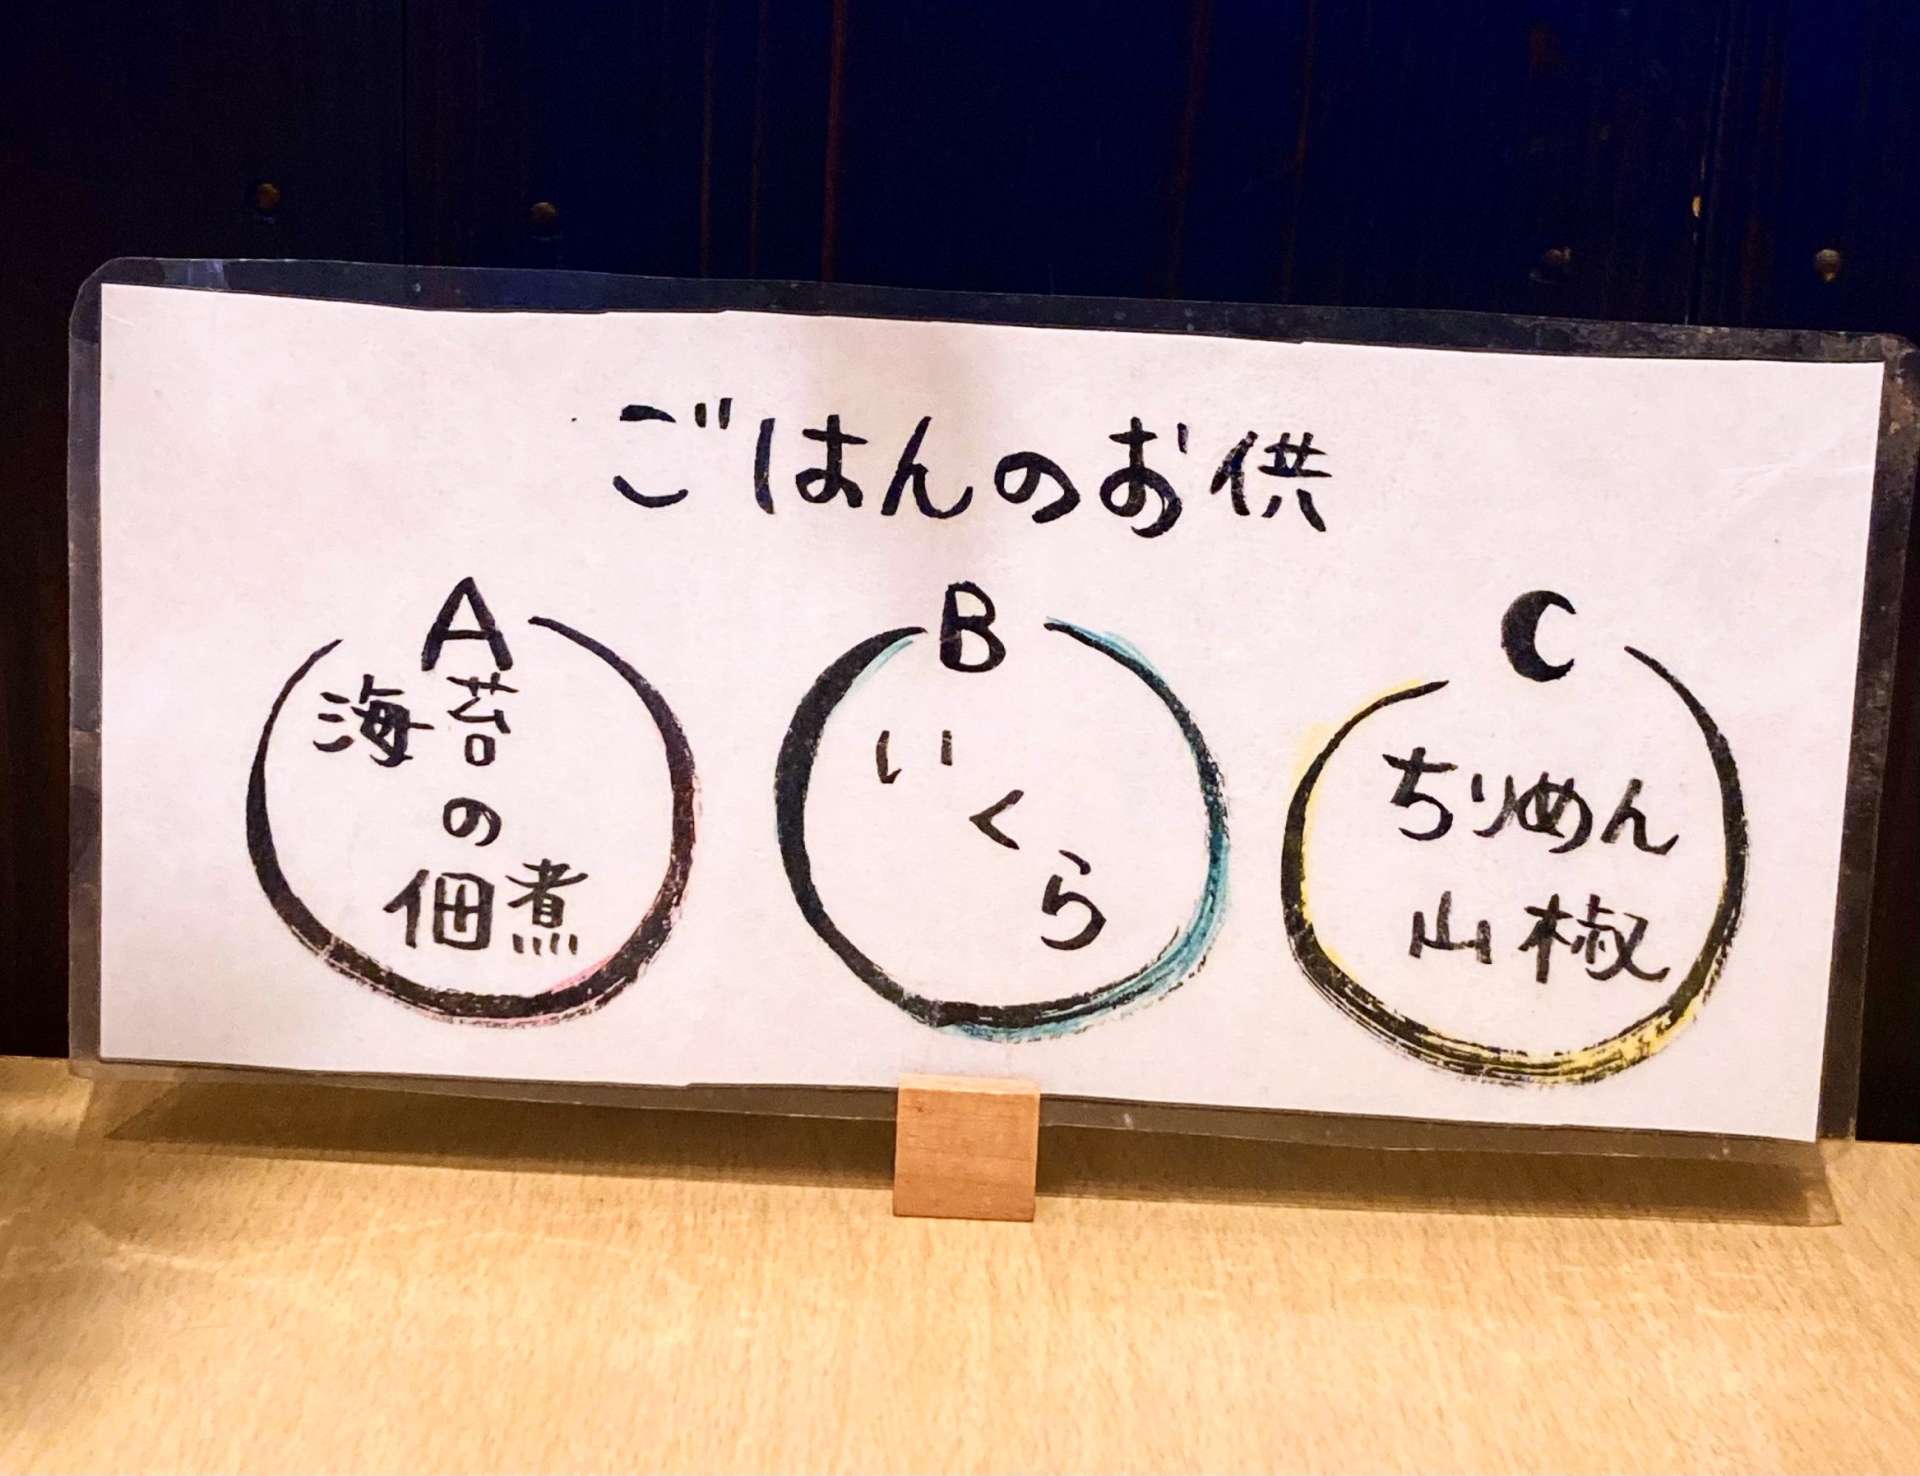 ごはんのお供
A
海苔
の
佃煮
B
いくら
C
ちりめん
山椒